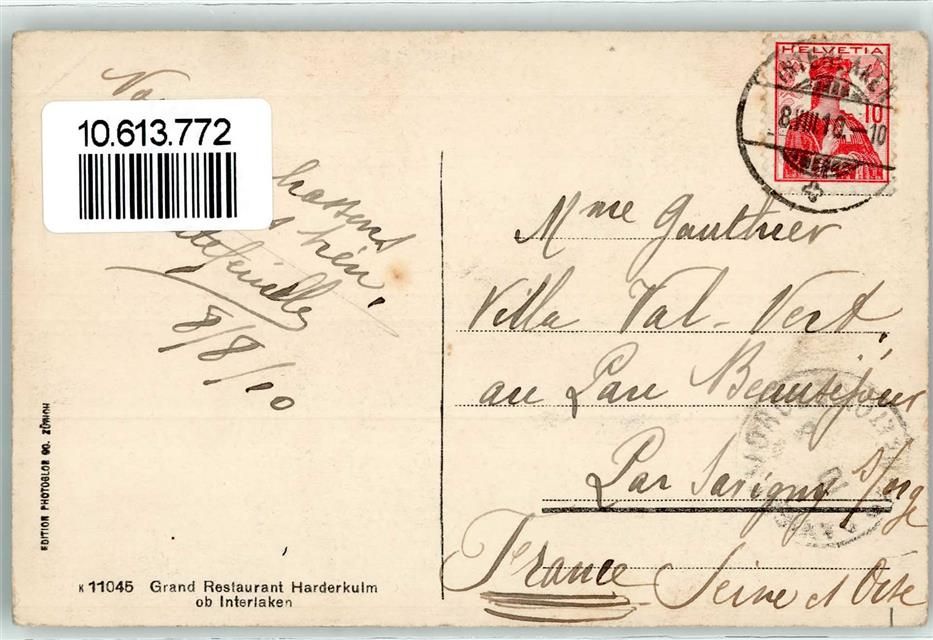 10.613.772
8/8/10
HELVETIA
10
INTERLAKEN
8.VIII.10.-10
Mme Gauthier
Villa Val-Vert
au Parc Beauséjour
Par Savigny s/orge
France Seine et Oise
EDITION PHOTOGLOB CO. ZÜRICH
K 11045 Grand Restaurant Harderkulm
ob Interlaken